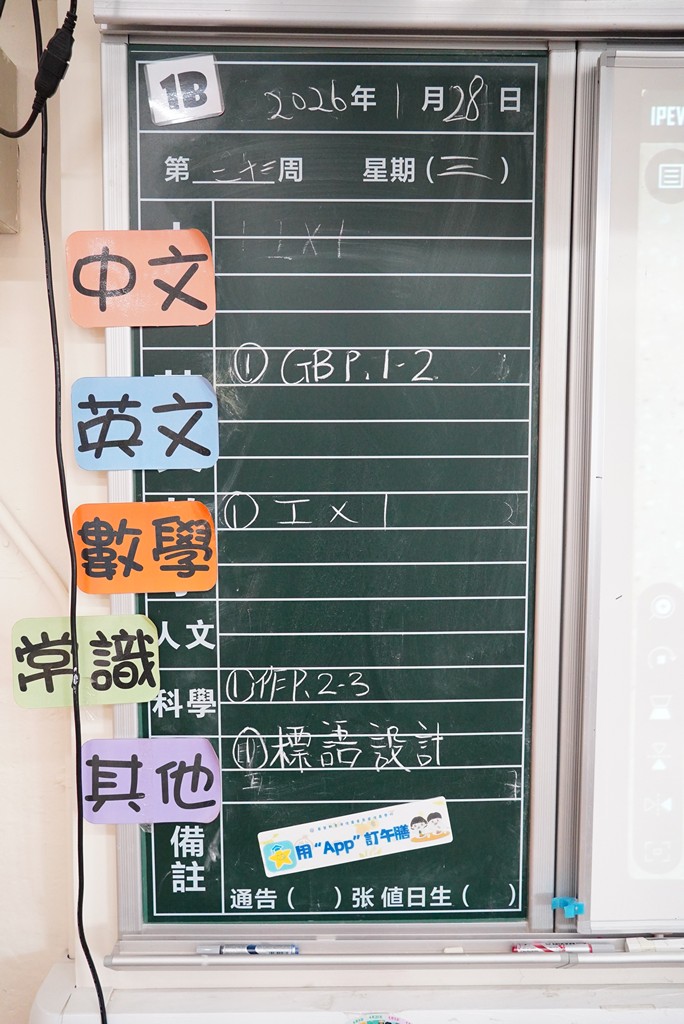 1B
2026年 1 月 28 日
第 二十三 周 星期 ( 三 )
中文
英文
① GB P.1-2
數學
① 工 x 1
人文
常識
科學
① 作 P.2-3
其他
標語設計
備註
用 “App” 訂午膳
通告 ( ) 张 值日生 ( )
IPEV